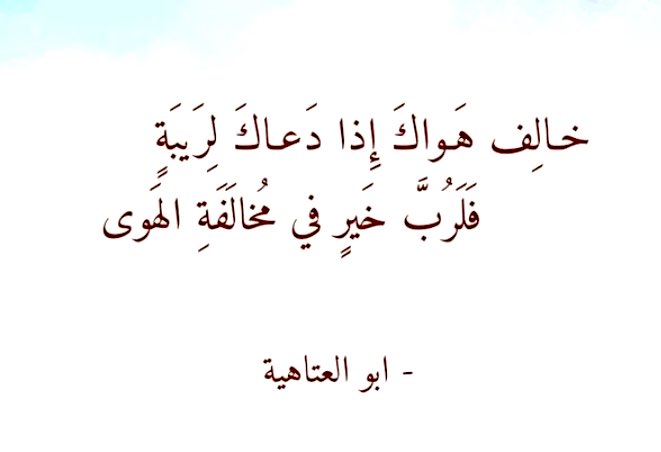 خالِف هَواكَ إِذا دَعاكَ لِرَيبَةٍ
فَلَرُبَّ خَيرٍ في مُخالَفَةِ الهَوى
- ابو العتاهية